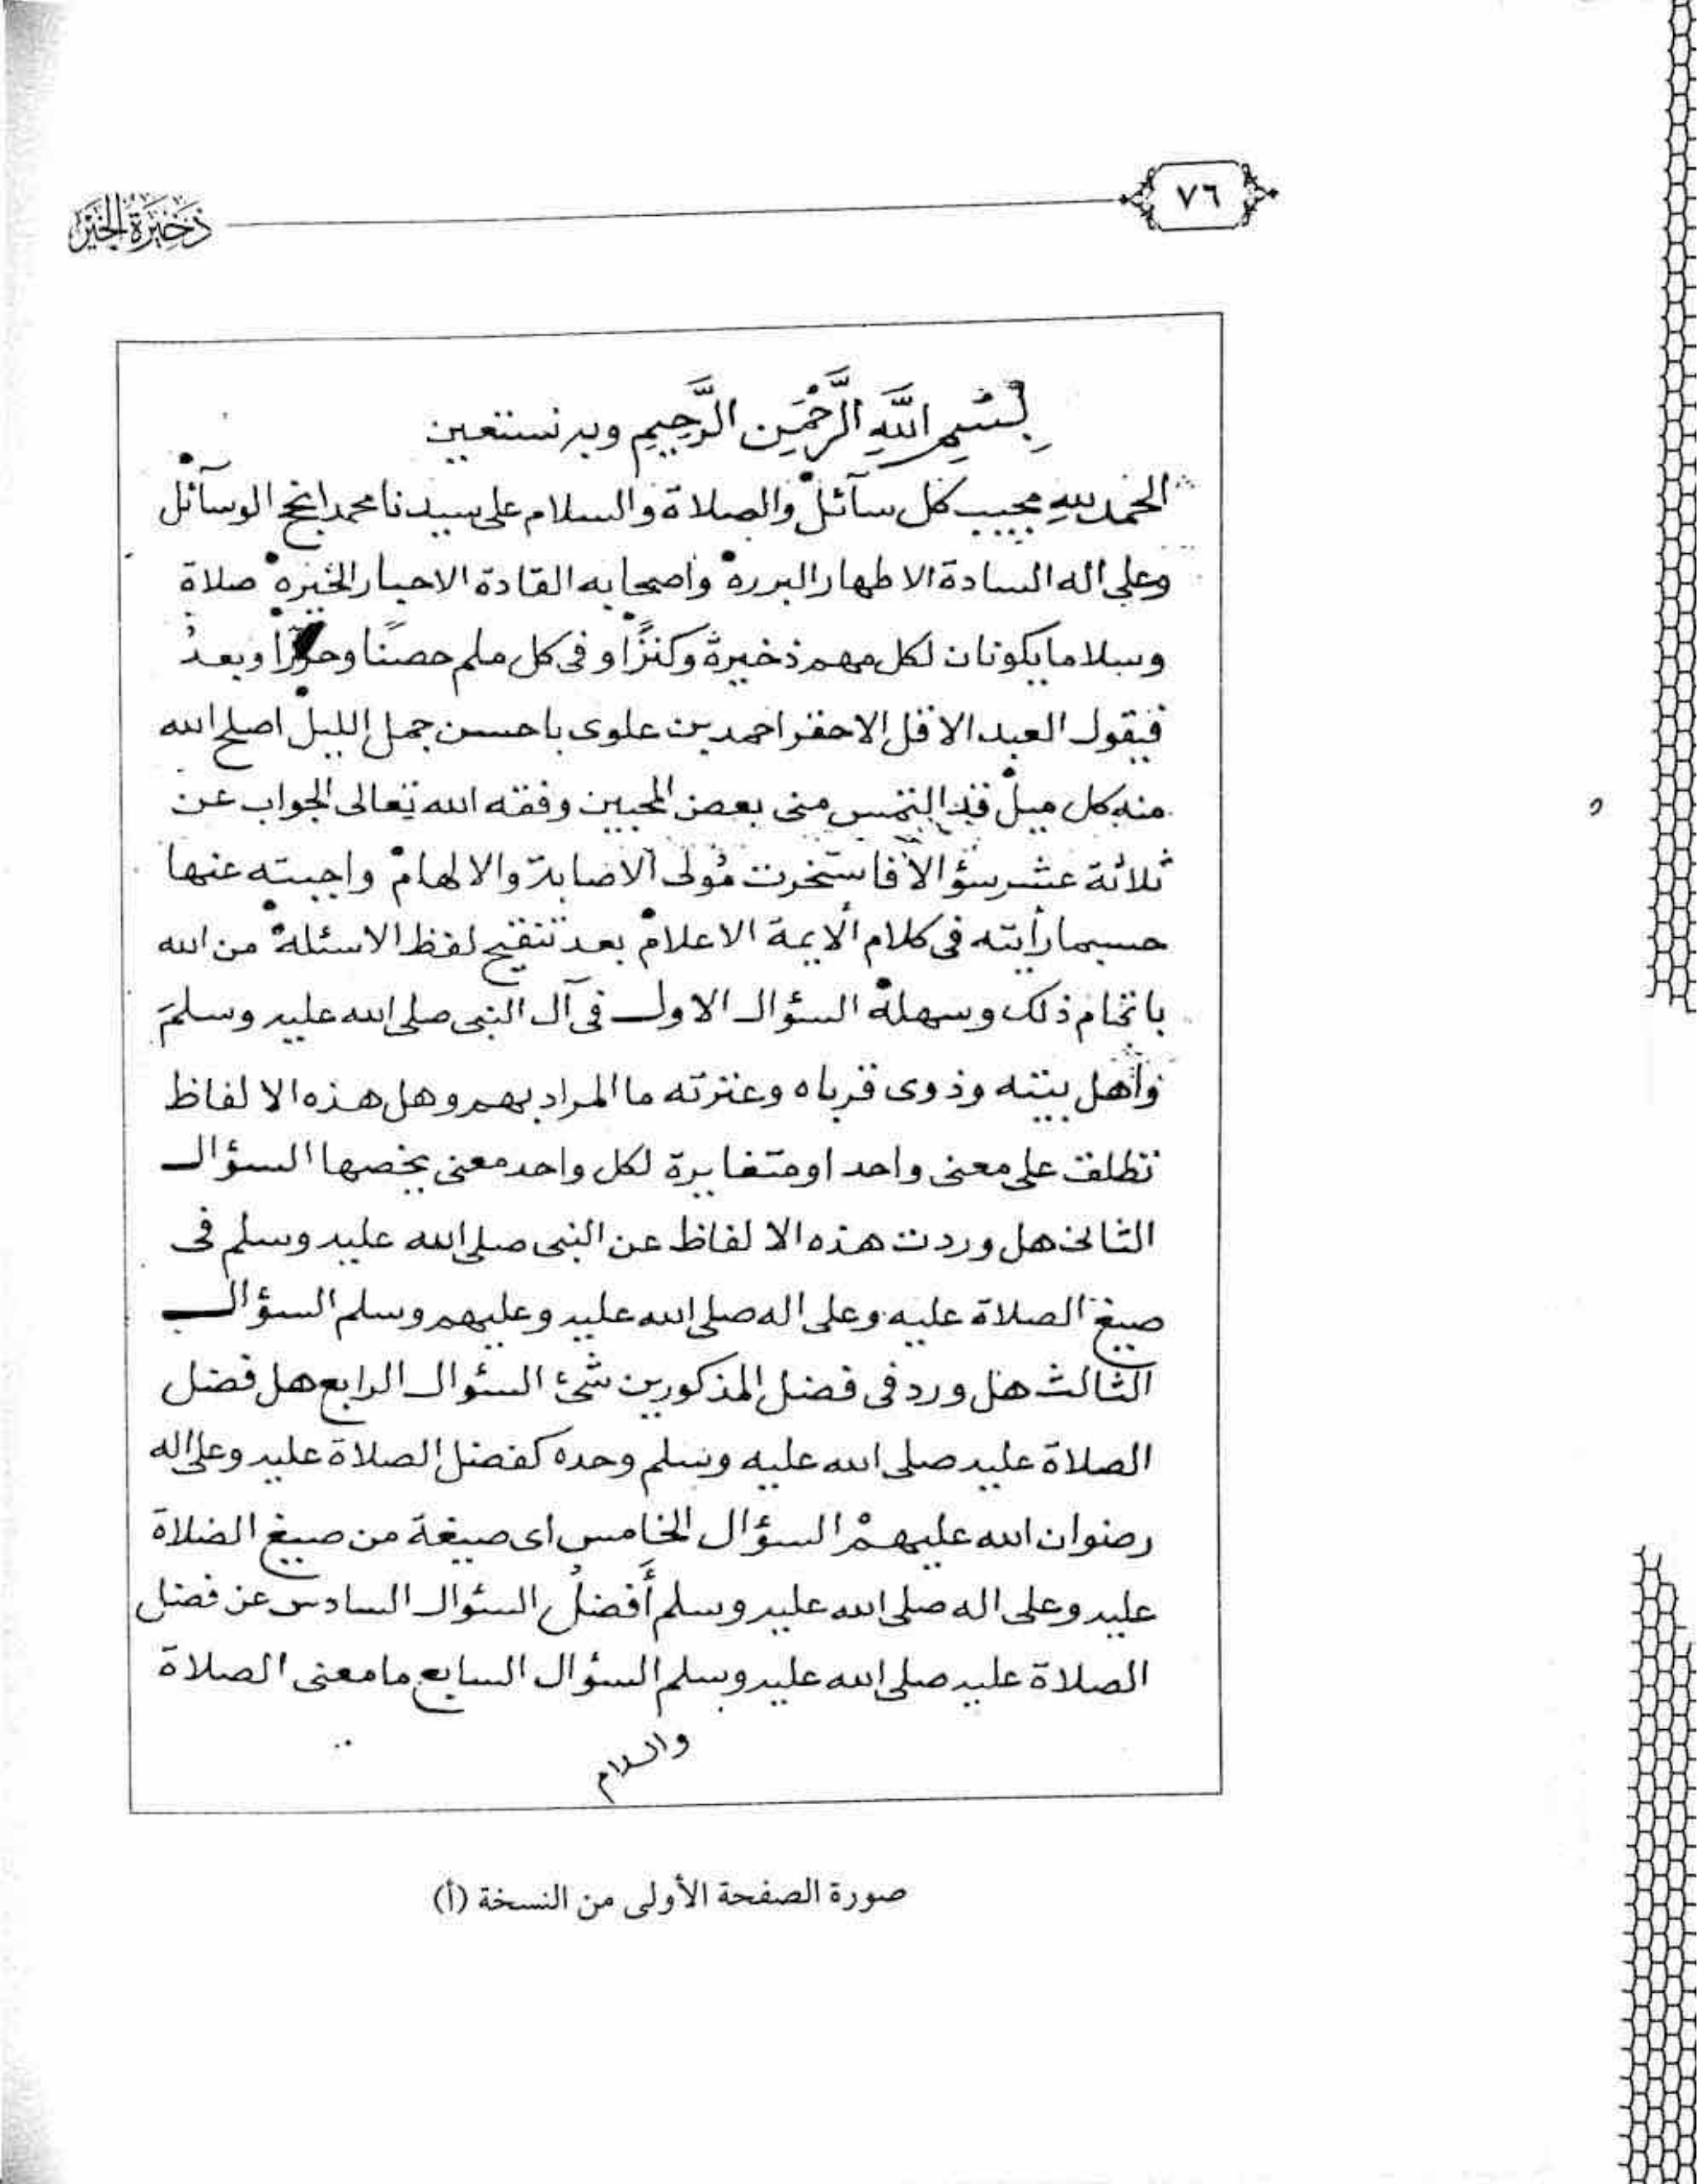 ٧٦
ذَخِيرَةُ الخَيْر
بِسْمِ اللَّهِ الرَّحْمَنِ الرَّحِيمِ وبه نستعين
الحَمد للهِ مجيب كل سآئل والصلاة والسلام على سيدنا محمد انجح الوسآئل
وعلى اله السادة الاطهار البرره واصحابه القادة الاخيار الخيره صلاة
وسلاما يكونان لكل مهم ذخيرة وكنزًا وفى كل ملم حصنًا وحرزًا وبعدُ
فيقول العبد الاقل الاحقر احمد بن علوى باحسن جمل الليل اصلح الله
منه كل ميل قد التمس منى بعض المحبين وفقه الله تعالى الجواب عن
ثلاثة عشر سؤالا فاستخرت مُولى الاصابة والالهام واجبته عنها
حسبما رأيته فى كلام الايمة الاعلام بعد تنقيح لفظ الاسئله من الله
باتمام ذلك وسهله السؤال الاول فى آل النبى صلى الله عليه وسلمَ
وأهل بيته وذوى قرباه وعترته ما المراد بهم وهل هذه الالفاظ
تطلق على معنى واحد او متغايرة لكل واحد معنى يخصها السؤال
الثانى هل وردت هذه الالفاظ عن النبى صلى الله عليه وسلم فى
صيغ الصلاة عليه وعلى اله صلى الله عليه وعليهم وسلم السؤال
الثالث هل ورد فى فضل المذكورين شئ السئوال الرابع هل فضل
الصلاة عليه صلى الله عليه وسلم وحده كفضل الصلاة عليه وعلى اله
رضوان الله عليهمْ السؤال الخامس اى صيغة من صيغ الصلاة
عليه وعلى اله صلى الله عليه وسلم أَفضلُ السئوال السادس عن فضل
الصلاة عليه صلى الله عليه وسلم السؤال السابع ما معنى الصلاة
والسلام
صورة الصفحة الأولى من النسخة (أ)